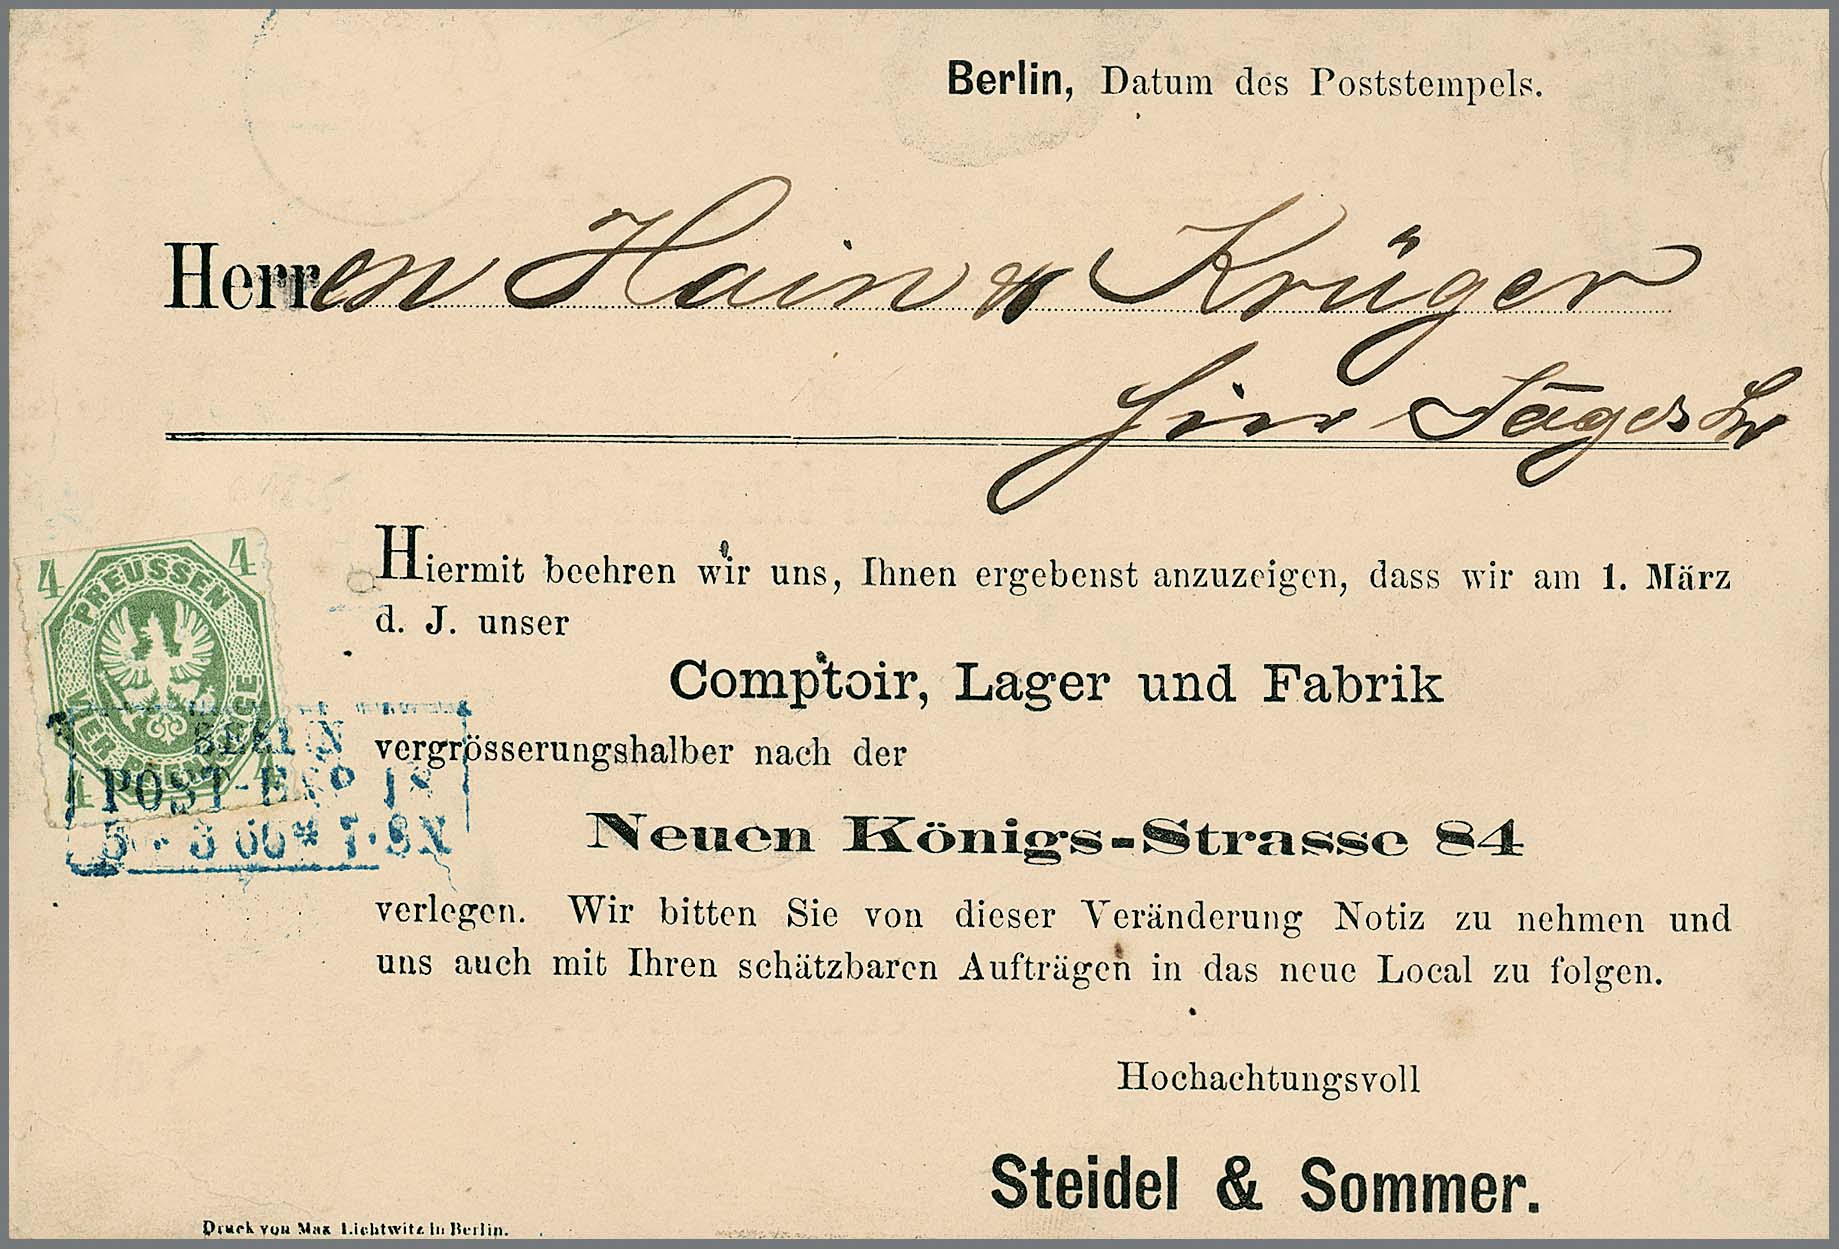 Berlin, Datum des Poststempels.
Herren Hain & Krüger
hier Jägerstr
4 4
PREUSSEN
VIER PFENNIGE
4 4
BERLIN
POST-EXP 18
5 3 66* 7-8N
Hiermit beehren wir uns, Ihnen ergebenst anzuzeigen, dass wir am 1. März
d. J. unser
Comptoir, Lager und Fabrik
vergrösserungshalber nach der
Neuen Königs-Strasse 84
verlegen. Wir bitten Sie von dieser Veränderung Notiz zu nehmen und
uns auch mit Ihren schätzbaren Aufträgen in das neue Local zu folgen.
Hochachtungsvoll
Steidel & Sommer.
Druck von Max Lichtwitz in Berlin.